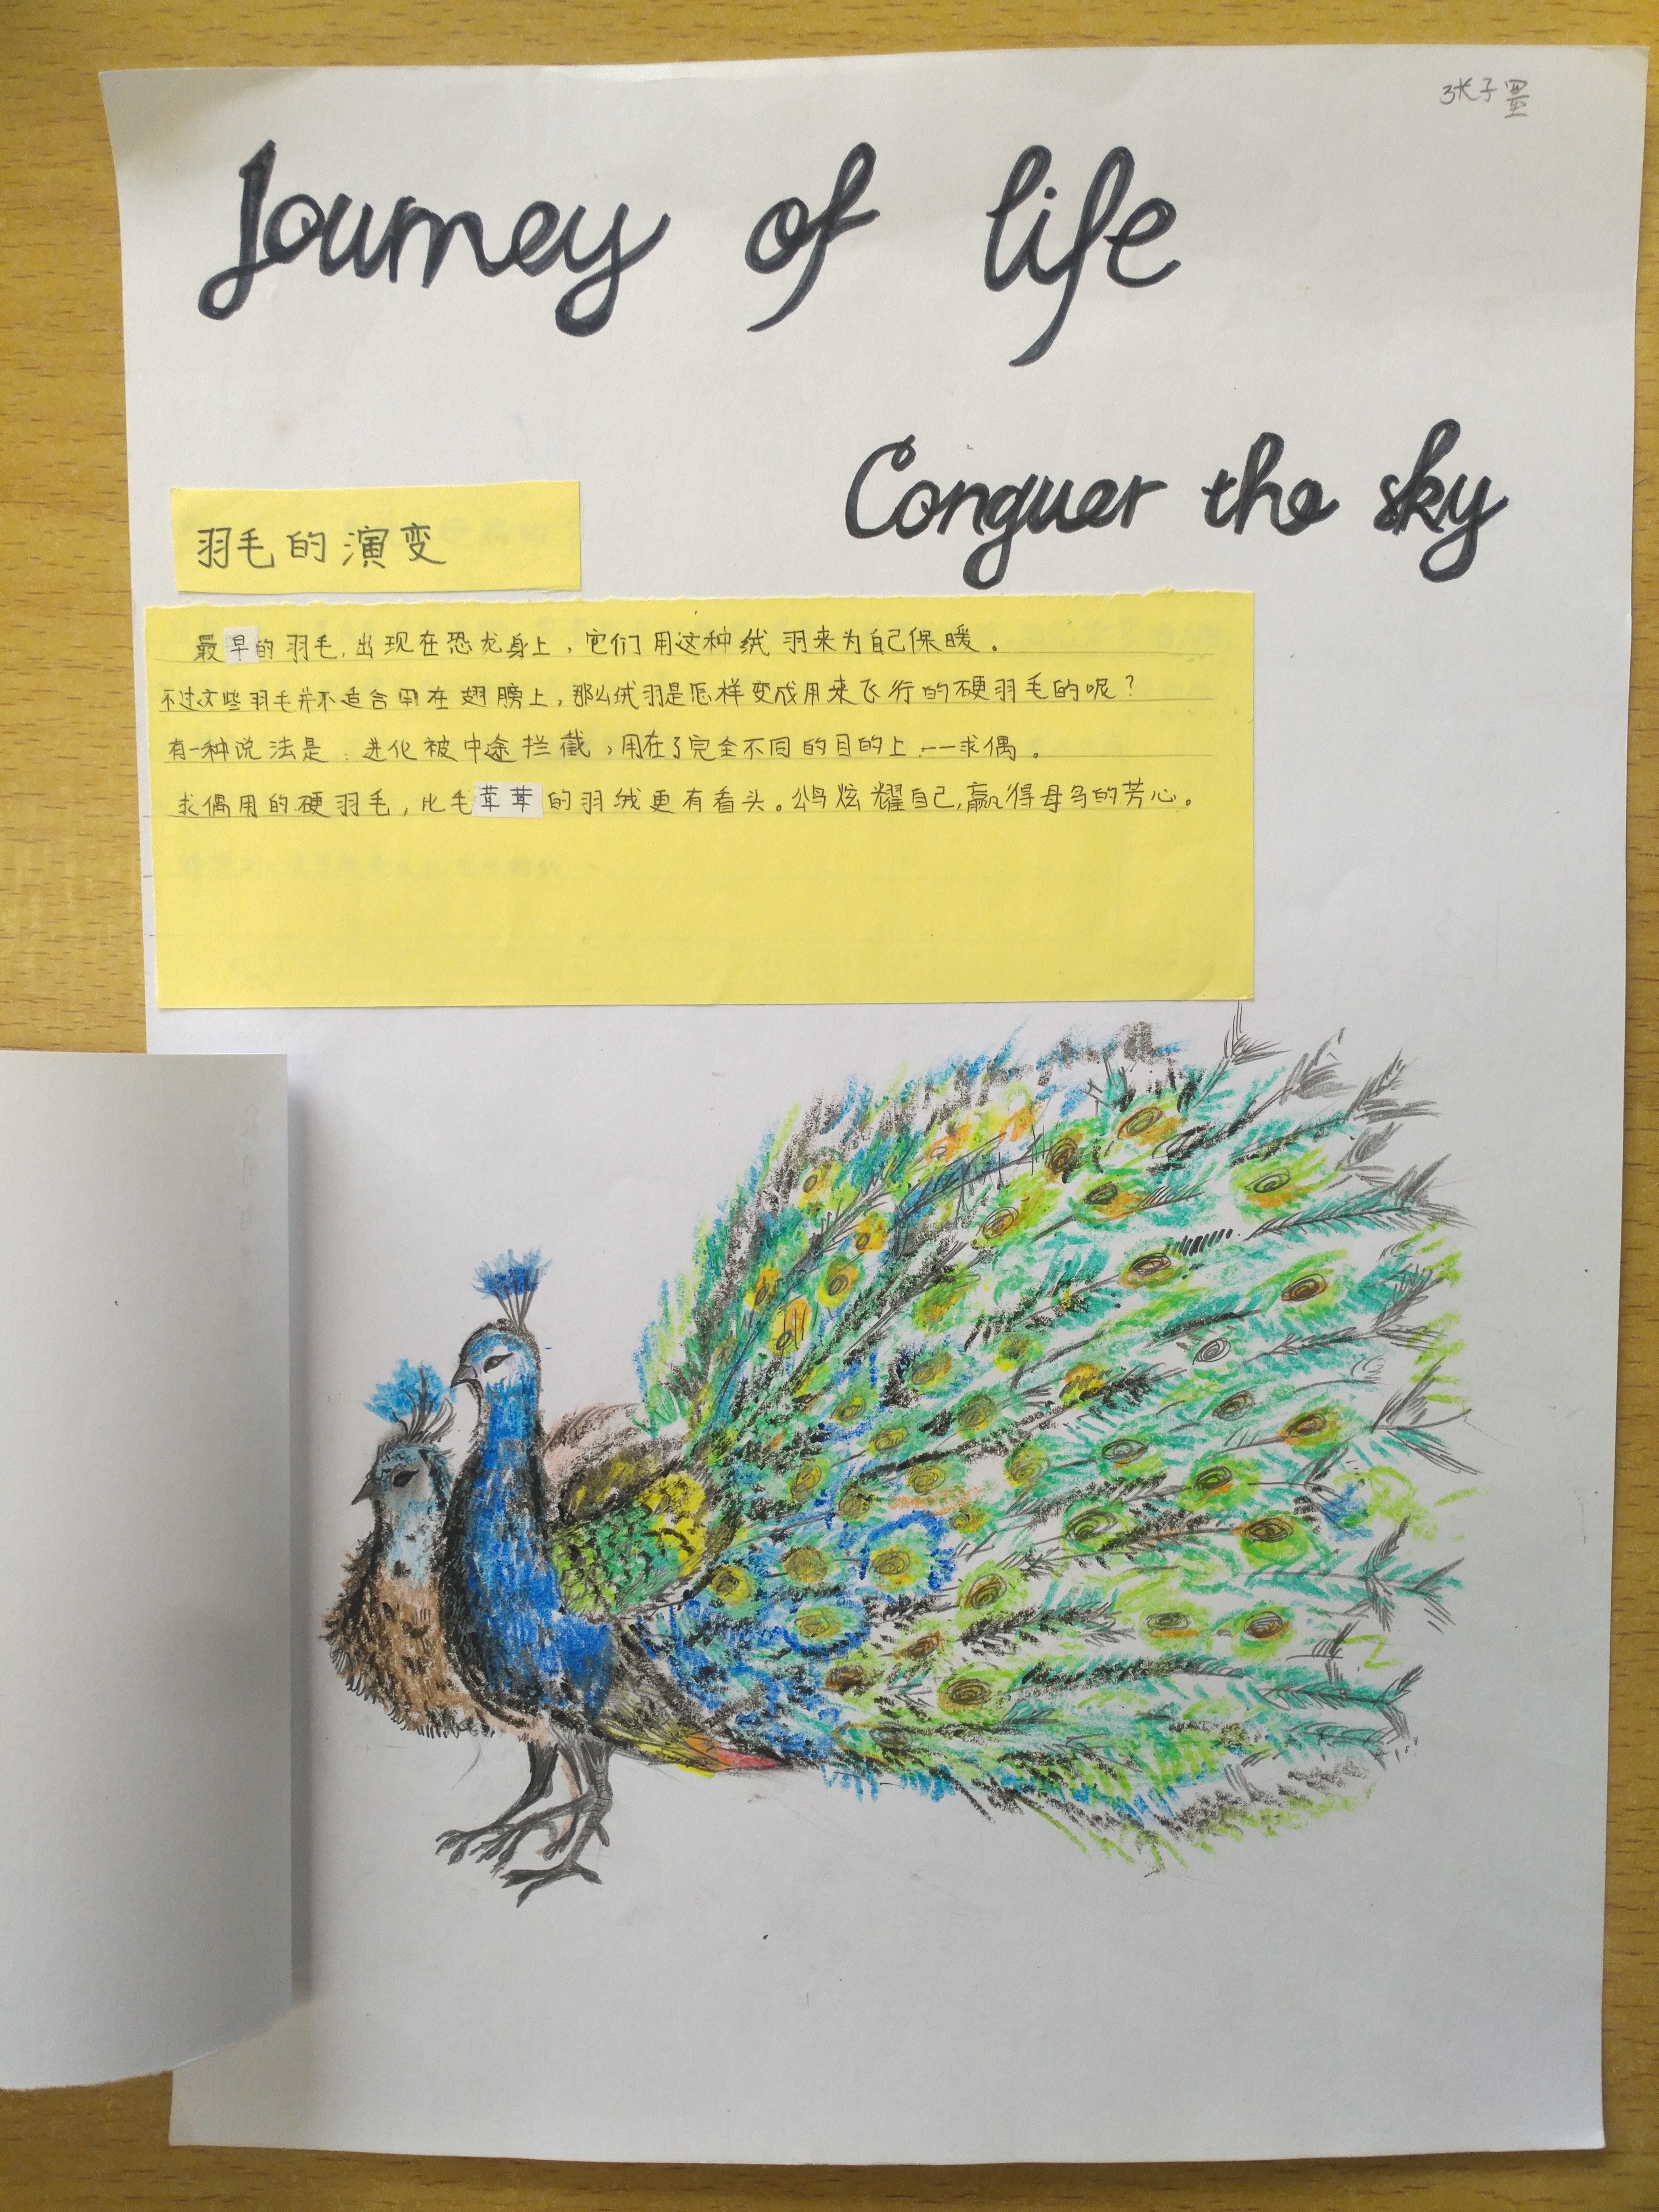 张子墨
Journey of life
Conquer the sky
羽毛的演变
最早的羽毛,出现在恐龙身上,它们用这种绒羽来为自己保暖。
不过这些羽毛并不适合用在翅膀上,那么绒羽是怎样变成用来飞行的硬羽毛的呢?
有一种说法是:进化被中途拦截,用在了完全不同的目的上——求偶。
求偶用的硬羽毛,比毛茸茸的羽绒更有看头。公鸟炫耀自己,赢得母鸟的芳心。